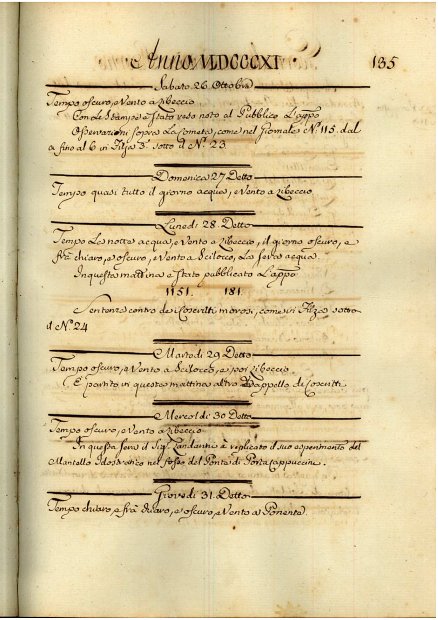 Anno MDCCCXI
135
Sabato 26. Ottobre
Tempo oscuro, e Vento a Libeccio
Con le Stampe è stato reso noto al Pubblico L'appo
Osservazioni sopra La Cometa, come nel Giornale N.º 115. dal
a fino al 6 in Filza 3.ª sotto il N.º 23
Domenica 27 Detto
Tempo quasi tutto il giorno acqua, e Vento a Libeccio
Lunedì 28. Detto
Tempo La notte acqua, e Vento a Libeccio, il giorno oscuro, e
frà chiaro, e oscuro, e Vento a Scilocco, La sera acqua
In questa mattina è stato pubblicato L'appo
1151. 181.
Sentenze contro de Coscritti morosi, come in Filza sotto
il N.º 24
Martedì 29 Detto
Tempo oscuro, e Vento a Scilocco, e poi Libeccio
È partito in questa mattina altro Drappello di Coscritti
Mercoldì 30 Detto
Tempo oscuro, e Vento a Libeccio
In questa sera il Sig.r Zandarini à replicato il suo esperimento del
Mantello Idrostatico nel fosso del Ponte di Porta Cappuccini
Giovedì 31. Detto
Tempo chiaro, e frà chiaro, e oscuro, e Vento a Ponente